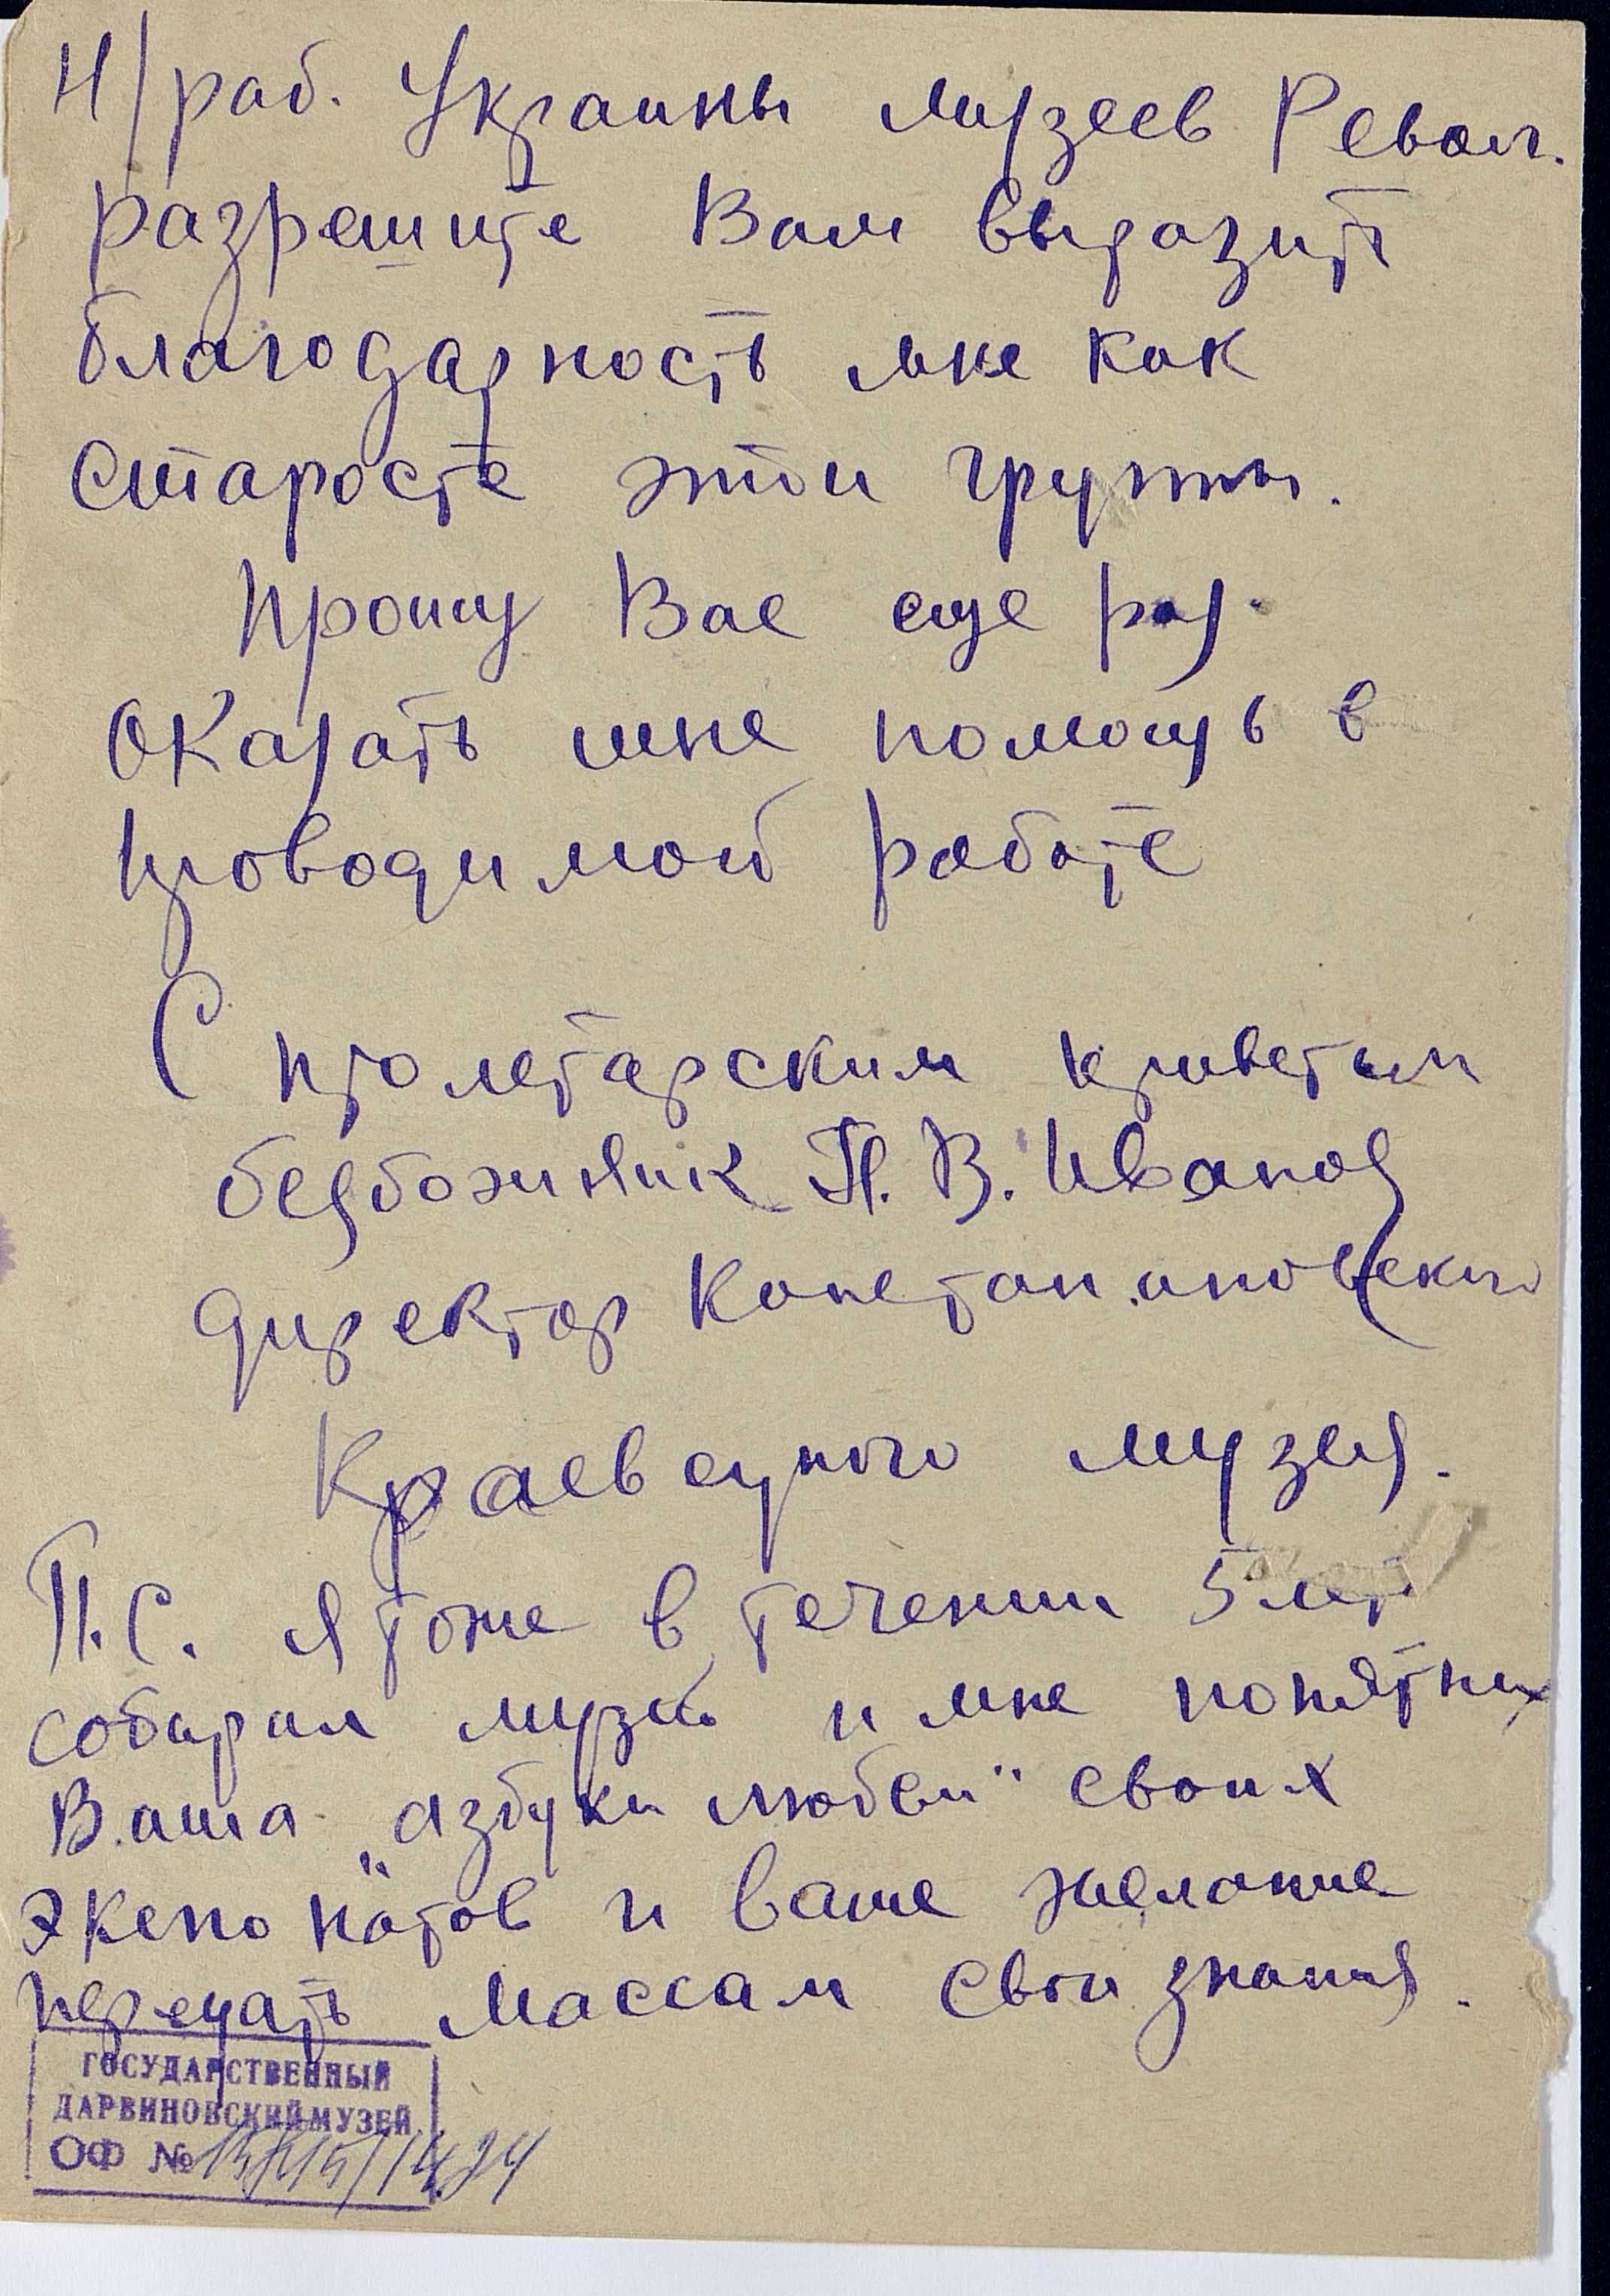 Н/раб. Украины музеев Револ.
разрешите Вам выразить
благодарность мне как
старосте этой группы.
Прошу Вас еще раз.
Оказать мне помощь в
проводимой работе
С пролетарским приветом
безбожник П. В. Иванов
директор Констан.ановский
Краеведного музея.
П.С. я тоже в течении 5 лет
собирал музей и мне понятны
Ваша „азбуки любви" своих
экспонатов и ваше желание
передать массам свои знания.
ГОСУДАРСТВЕННЫЙ
ДАРВИНОВСКИЙ МУЗЕЙ
ОФ №